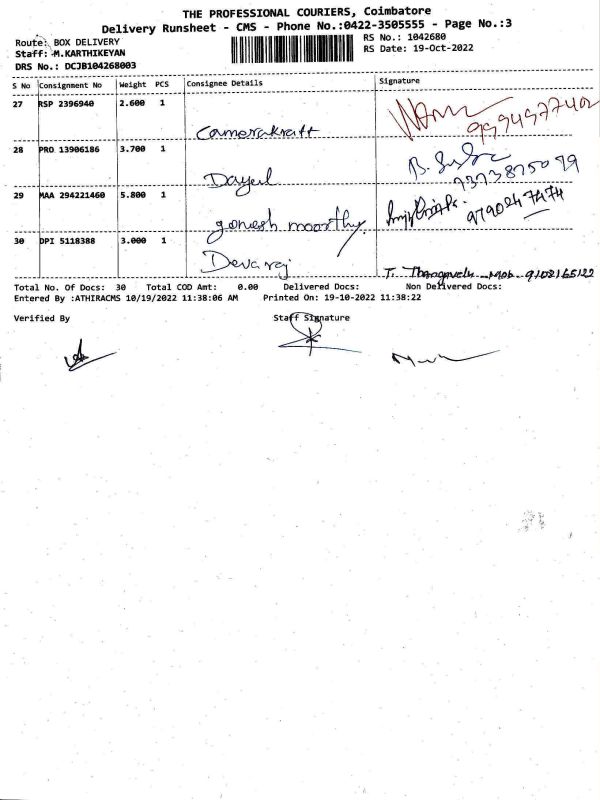 THE PROFESSIONAL COURIERS, Coimbatore
Delivery Runsheet - CMS - Phone No.:0422-3505555 - Page No.:3
Route: BOX DELIVERY
RS No.: 1042680
Staff: M.KARTHIKEYAN
RS Date: 19-Oct-2022
DRS No.: DCJB104268003
S No Consignment No Weight PCS Consignee Details Signature
27 RSP 2396940 2.600 1
Camerakraft
28 PRO 13906186 3.700 1
Dayal
29 MAA 294221460 5.800 1
gonesh moorthy
30 DPI 5118388 3.000 1
Devaraj
T. Thangavelu Mob
Total No. Of Docs: 30 Total COD Amt: 0.00 Delivered Docs: Non Delivered Docs:
Entered By :ATHIRACMS 10/19/2022 11:38:06 AM Printed On: 19-10-2022 11:38:22
Verified By Staff Signature